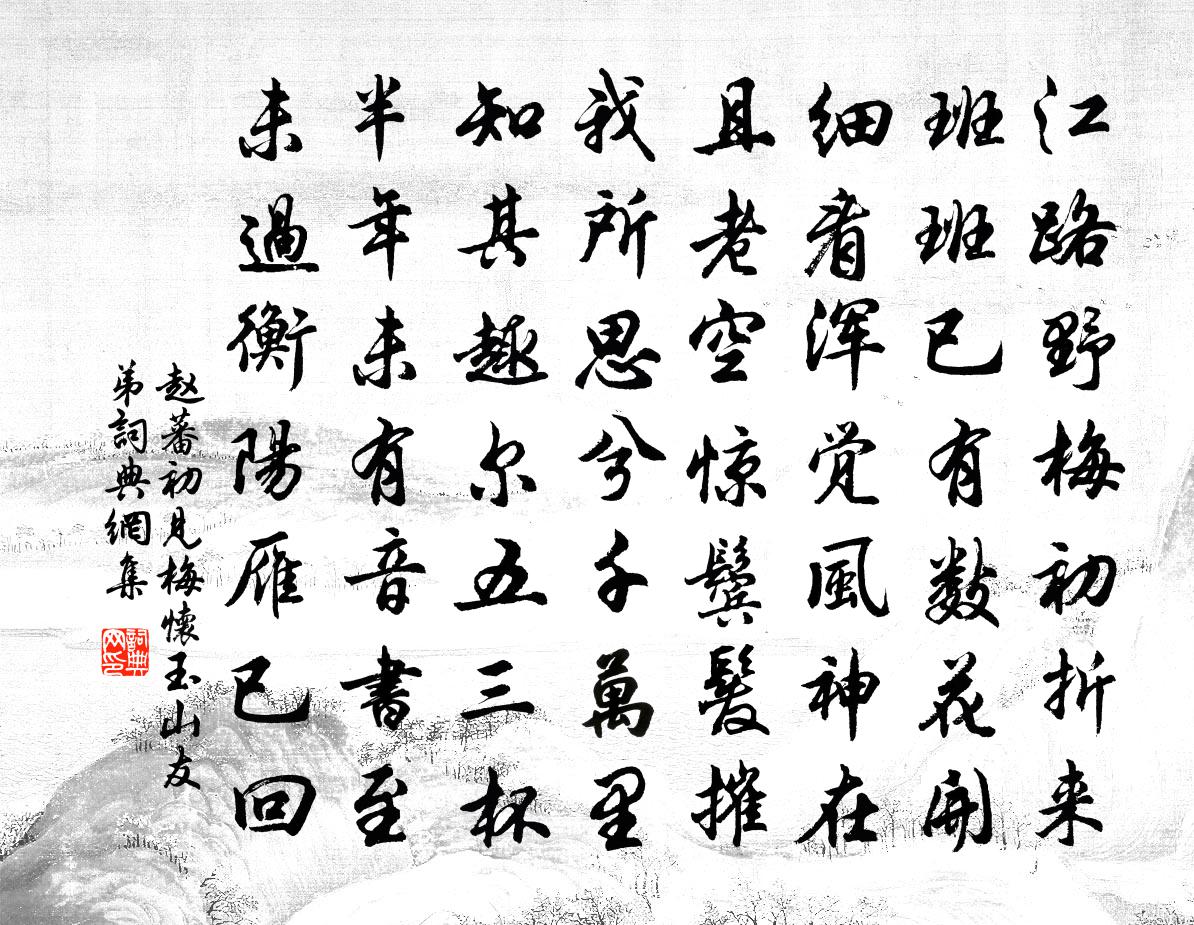 江路野梅初折来
班班已有数花開
细看浑觉風神在
且老空惊鬓髮摧
我所思兮千萬里
知其趣尔五三杯
半年未有音書至
未過衡陽雁已回
赵蕃初見梅懷玉山友
弟詞典網集
詞典
网印